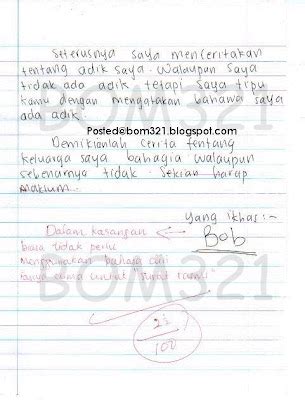 BOM321
Seterusnya saya menceritakan
tentang adik saya. Walaupun saya
tidak ada adik tetapi saya tipu
kamu dengan mengatakan bahawa saya
ada adik.
Posted@bom321.blogspot.com
Demikianlah cerita tentang
keluarga saya bahagia walaupun
sebenarnya tidak. Sekian harap
maklum.
Yang ikhas :-
Bob
Dalam karangan
biasa tidak perlu
menggunakan bahasa
hanya untuk "surat rasmi"
BOM321
100